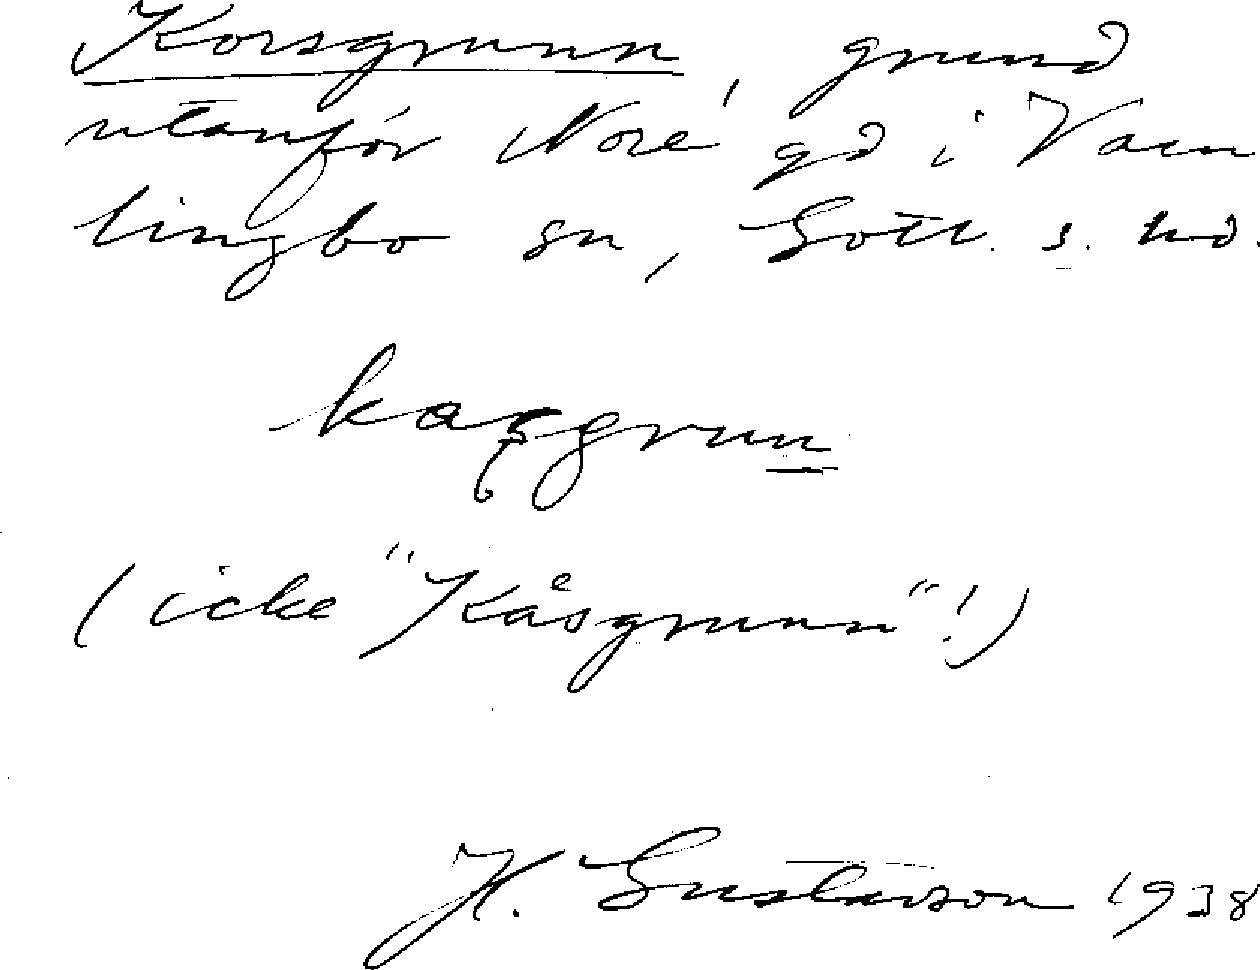 Korsgrunn, grund
utanför Nore gd i Vam
lingbo sn, Gotl. s. hd.
(icke "Kåsgrunn"!)
H. Gustavson 1938